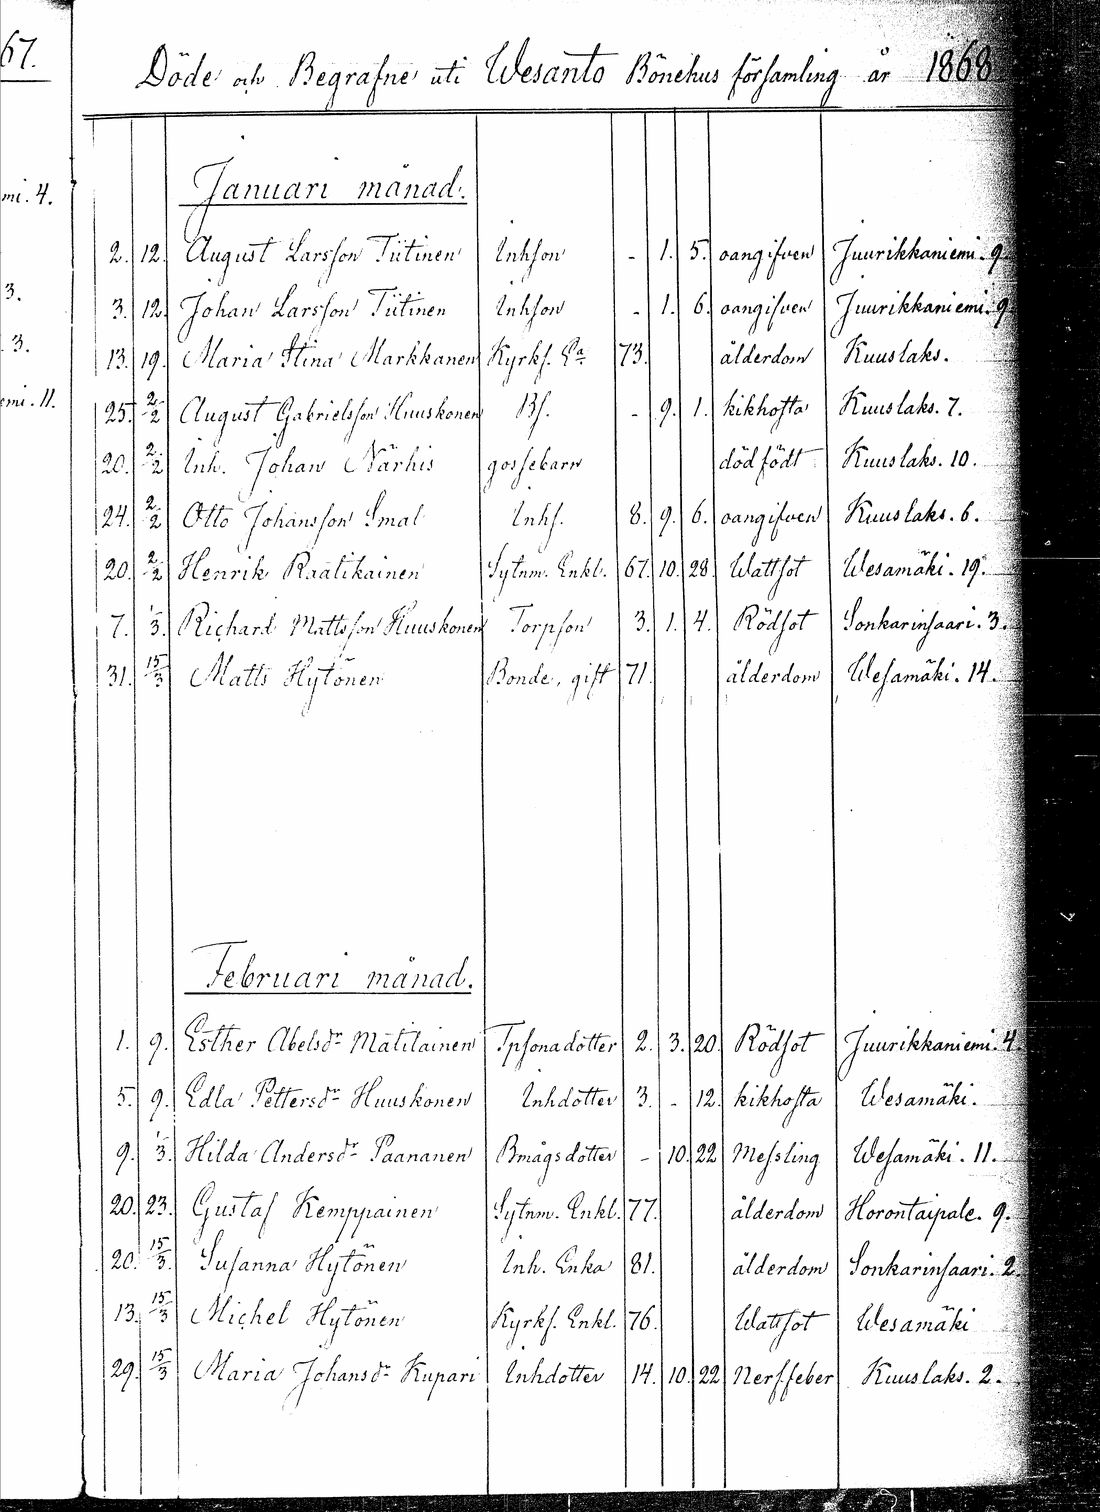 67.
Döde och Begrafne uti Wesanto Bönehus församling år 1868
mi. 4.
3.
3.
emi. 11.
Januari månad.
2. 12. August Larsson Tiitinen Inhson - 1. 5. oangifven Juurikkaniemi. 9
3. 12. Johan Larsson Tiitinen Inhson - 1. 6. oangifven Juurikkaniemi. 9
13. 19. Maria Stina Markkanen Kyrkf. Ea 73. ålderdom Kuuslaks.
25. 2/2 August Gabrielsson Huuskonen Bs. - 9. 1. kikhosta Kuuslaks. 7.
20. 2/2 Inh. Johan Närhis gossebarn dödfödt Kuuslaks. 10.
24. 2/2 Otto Johansson Smal Inhs. 8. 9. 6. oangifven Kuuslaks. 6.
20. 2/2 Henrik Raatikainen Sytnm. Enkl. 67. 10. 28. Wattsot Wesamäki. 19.
7. 1/3. Richard Mattsson Huuskonen Torpson 3. 1. 4. Rödsot Sonkarinsaari. 3.
31. 15/3 Matts Hytönen Bonde, gift 71. ålderdom Wesamäki. 14.
Februari månad.
1. 9. Esther Abelsdr Matilainen Tpsonadotter 2. 3. 20. Rödsot Juurikkaniemi. 4.
5. 9. Edla Pettersdr Huuskonen Inhdotter 3. - 12. kikhosta Wesamäki.
9. 1/3. Hilda Andersdr Paananen Bmågsdotter - 10. 22 Messling Wesamäki. 11.
20. 23. Gustaf Kemppainen Sytnm. Enkl. 77. ålderdom Horontaipale. 9.
20. 15/3. Susanna Hytönen Inh. Enka 81. ålderdom Sonkarinsaari. 2.
13. 15/3 Michel Hytönen Kyrkf. Enkl. 76. Wattsot Wesamäki
29. 15/3 Maria Johansdr Kupari Inhdotter 14. 10. 22 Nerffeber Kuuslaks. 2.